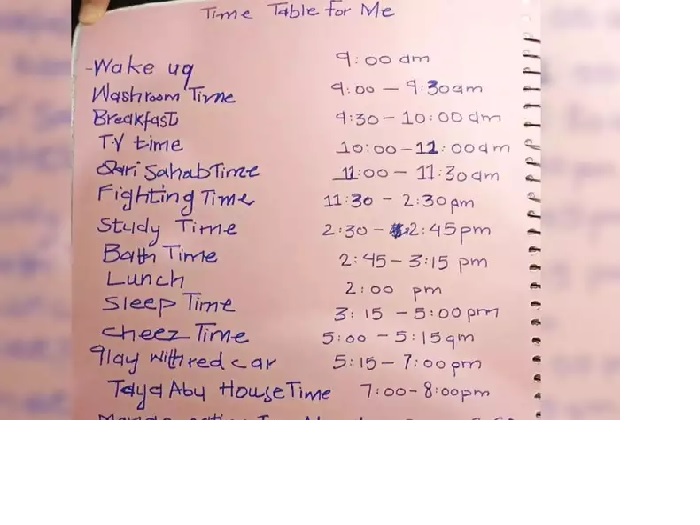 Time Table for Me
-Wake uq 9:00 am
Washroom Time 9:00 - 9:30am
Breakfast 9:30 - 10:00 am
TV time 10:00-11:00am
Qari Sahab Time 11:00 - 11:30am
Fighting Time 11:30 - 2:30pm
Study Time 2:30 - 2:45pm
Bath Time 2:45-3:15 pm
Lunch 2:00 pm
Sleep Time 3:15 -5:00 pm
Cheez Time 5:00 - 5:15am
Play with red car 5:15-7:00pm
Taya Abu House Time 7:00-8:00pm